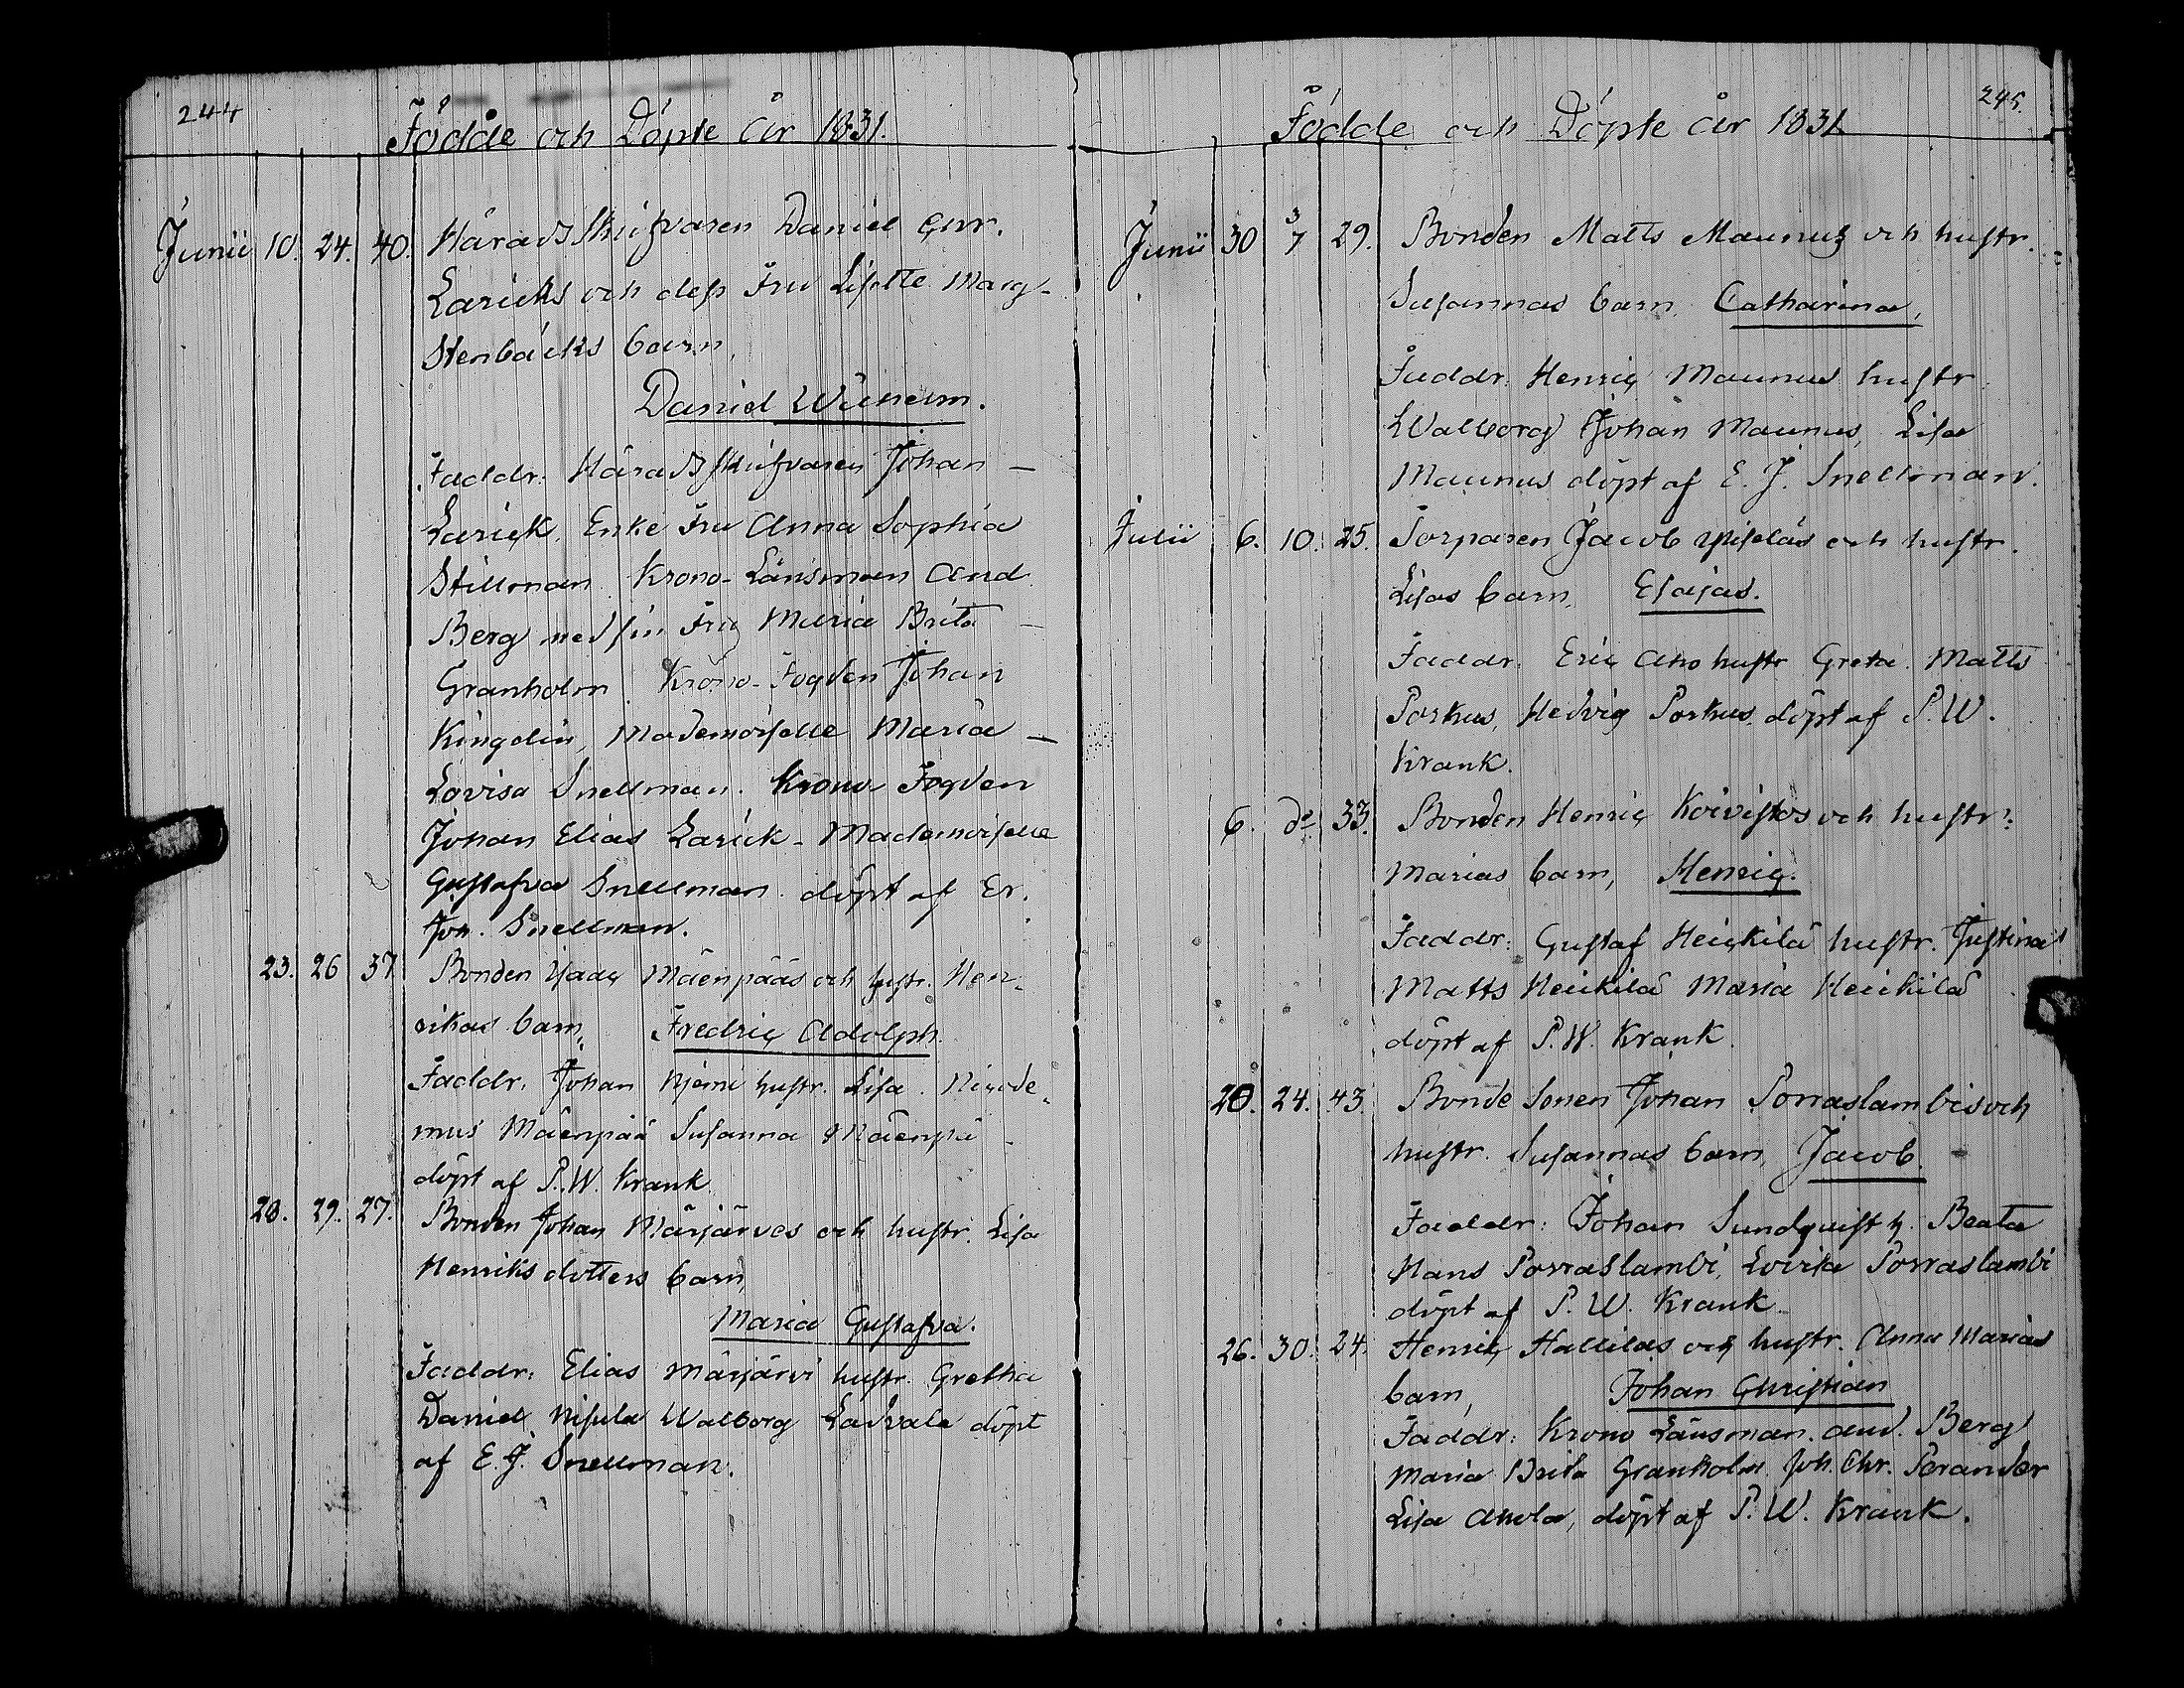 244
Födde och Döpte år 1831.
Junii 10. 24. 40. Häradsskrifvaren Daniel Chr.
Laricks och dess Fru Lisette Marg-
Stenbäcks barn,
Daniel Wilhelm.
Faddr: Häradsskrifvaren Johan —
Larick, Enke Fru Anna Sophia
Stillman Krono-Länsman And.
Berg med sin Fru Maria Brita —
Granholm Krono-Fogden Johan
Kingelin, Mademoiselle Maria —
Lovisa Snellman. Krono Fogden
Johan Elias Larick - Mademoiselle
Gustafva Snellman döpt af Er.
Joh. Snellman.
23. 26 37. Bonden Isaac Mäenpääs och hustr. Hen-
rikas barn, Fredric Adolph.
Faddr. Johan Njemi hustr. Lisa. Nicode-
mus Mäenpää Susanna Mäenpä —
döpt af P. W. Krank
28. 29. 27. Bonden Johan Märjärves och hustr. Lisa
Henriksdotters barn,
Maria Gustafva.
Faddr: Elias Märjärvi hustr. Gretha
Daniel Nisula Walborg Ladvala döpt
af E. J. Snellman.
245.
Födde och Döpte år 1831
Junii 30 3/7 29. Bonden Matts Maunus och hustr.
Susannas barn, Catharina,
Faddr: Henric Maunus hustr
Walborg Johan Maunus, Lisa
Maunus döpt af E. J. Snellman.
Julii 6. 10. 25. Torparen Jacob och hustr.
Lisas barn, Esaias.
Faddr. Eric Aho hustr Greta. Matts
Porkus, Hedvig Porkus döpt af P. W.
Krank.
6. do 33. Bonden Henric Koivistos och hustr:
Marias barn, Henric.
Faddr: Gustaf Heickilä hustr. Justina
Matts Heickilä Maria Heickilä
döpt af P. W. Krank.
20. 24. 43. Bonde Sonen Johan Porraslambis och
hustr. Susannas barn, Jacob.
Faddr: Johan Sundquist h. Beata
Hans Porraslambi, Lovisa Porraslambi
döpt af P. W. Krank
26. 30. 24. Henric Hallilas och hustr. Anna Marias
barn, Johan Christian
Faddr: Krono Länsman And. Berg
Maria Brita Granholm Joh. Chr. Perander
Lisa Ahola, döpt af P. W. Krank.